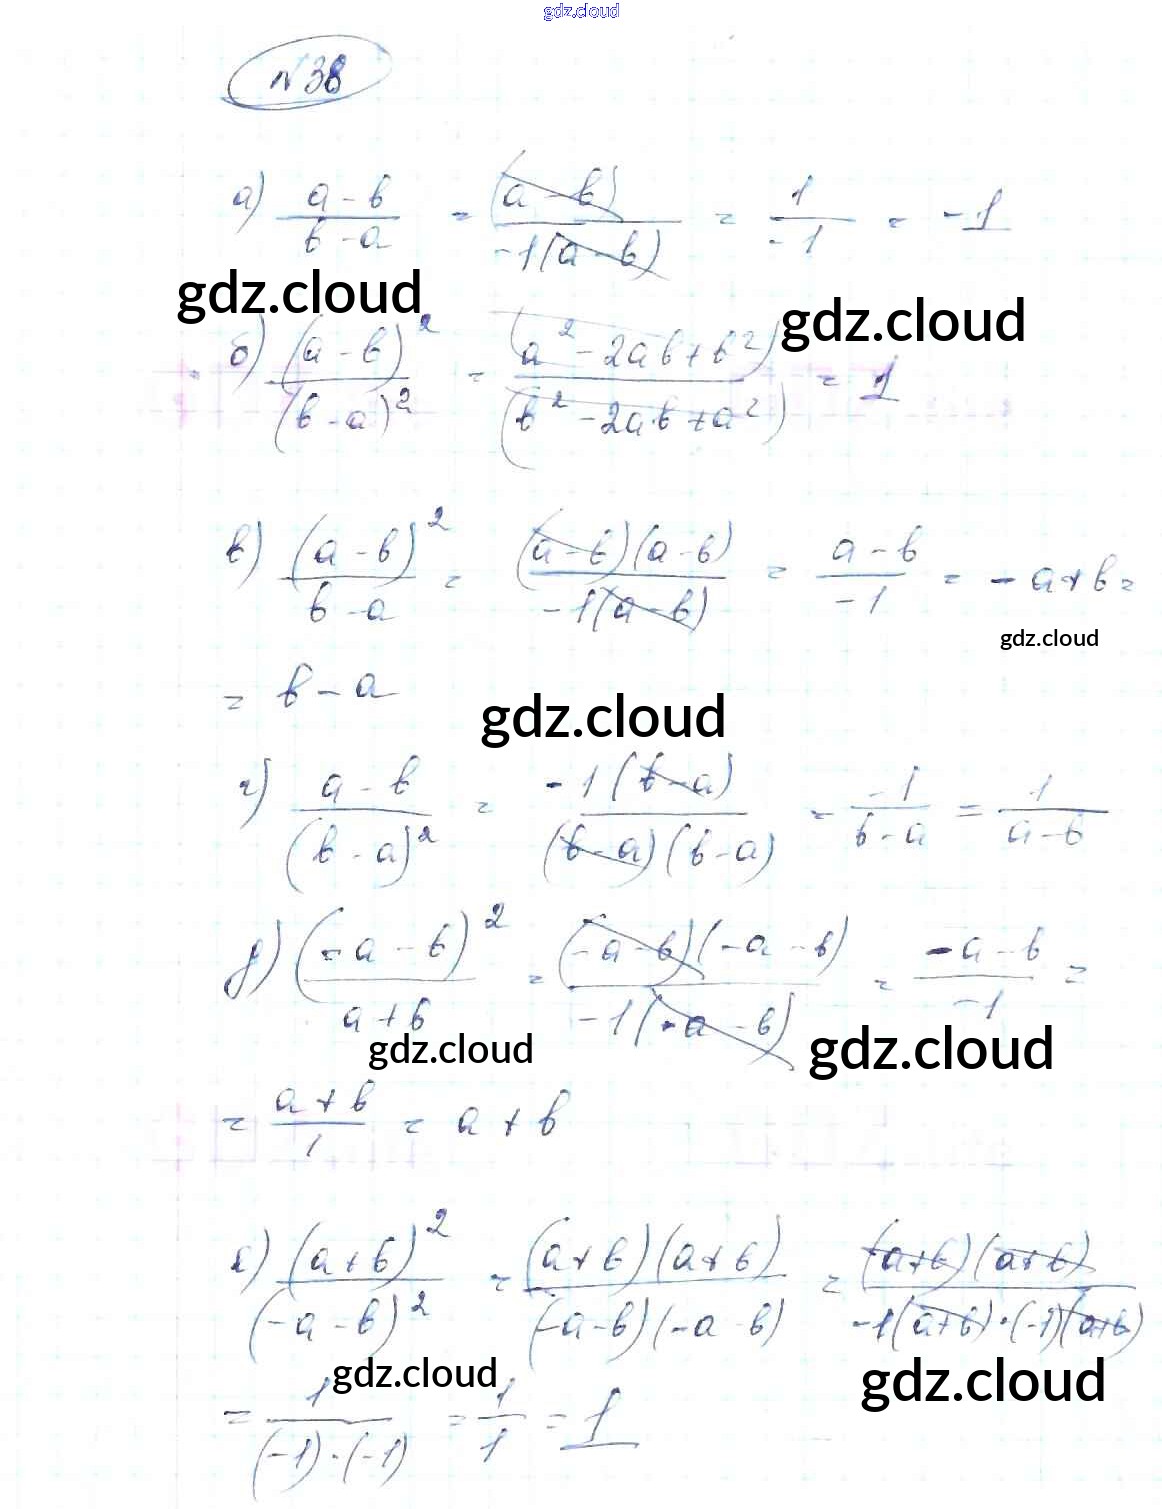 gdz.cloud
№38
а) (a-b)/(b-a) = (a-b)/(-1(a-b)) = 1/-1 = -1
gdz.cloud
gdz.cloud
б) (a-b)²/(b-a)² = (a²-2ab+b²)/(b²-2ab+a²) = 1
в) (a-b)²/(b-a) = (a-b)(a-b)/(-1(a-b)) = (a-b)/-1 = -a+b =
gdz.cloud
= b-a
gdz.cloud
г) (a-b)/(b-a)² = -1(b-a)/((b-a)(b-a)) = -1/(b-a) = 1/(a-b)
д) (-a-b)²/(a+b) = (-a-b)(-a-b)/(-1(-a-b)) = (-a-b)/-1 =
gdz.cloud
gdz.cloud
= (a+b)/1 = a+b
е) (a+b)²/(-a-b)² = (a+b)(a+b)/((-a-b)(-a-b)) = (a+b)(a+b)/(-1(a+b)·(-1)(a+b))
gdz.cloud
gdz.cloud
= 1/((-1)·(-1)) = 1/1 = 1